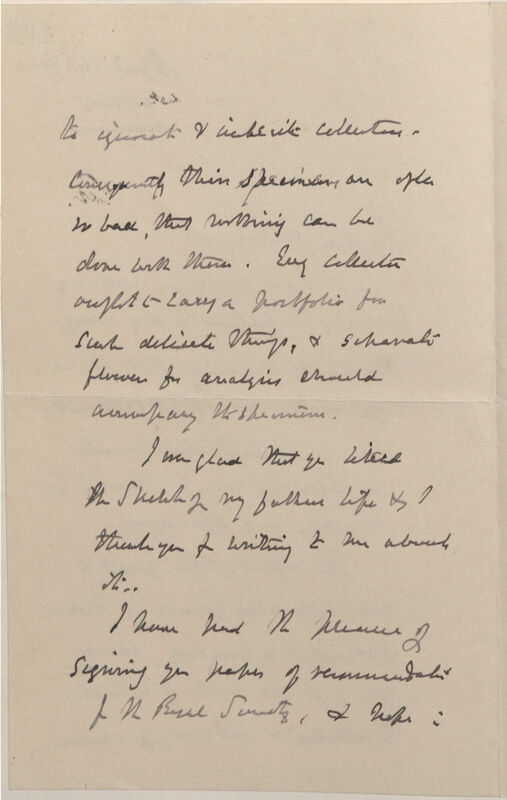 to ignorant & collectors.
Consequently their specimens are often
so bad, that nothing can be
done with them. Every collector
ought to carry a portfolio for
such delicate things, & separate
flowers for analysis should
accompany the specimens.
I am glad that you liked
the Sketch of my fathers life & I
thank you for writing to me about
it.
I have had the pleasure of
signing your papers of recommendation
for the Royal Society, & hope